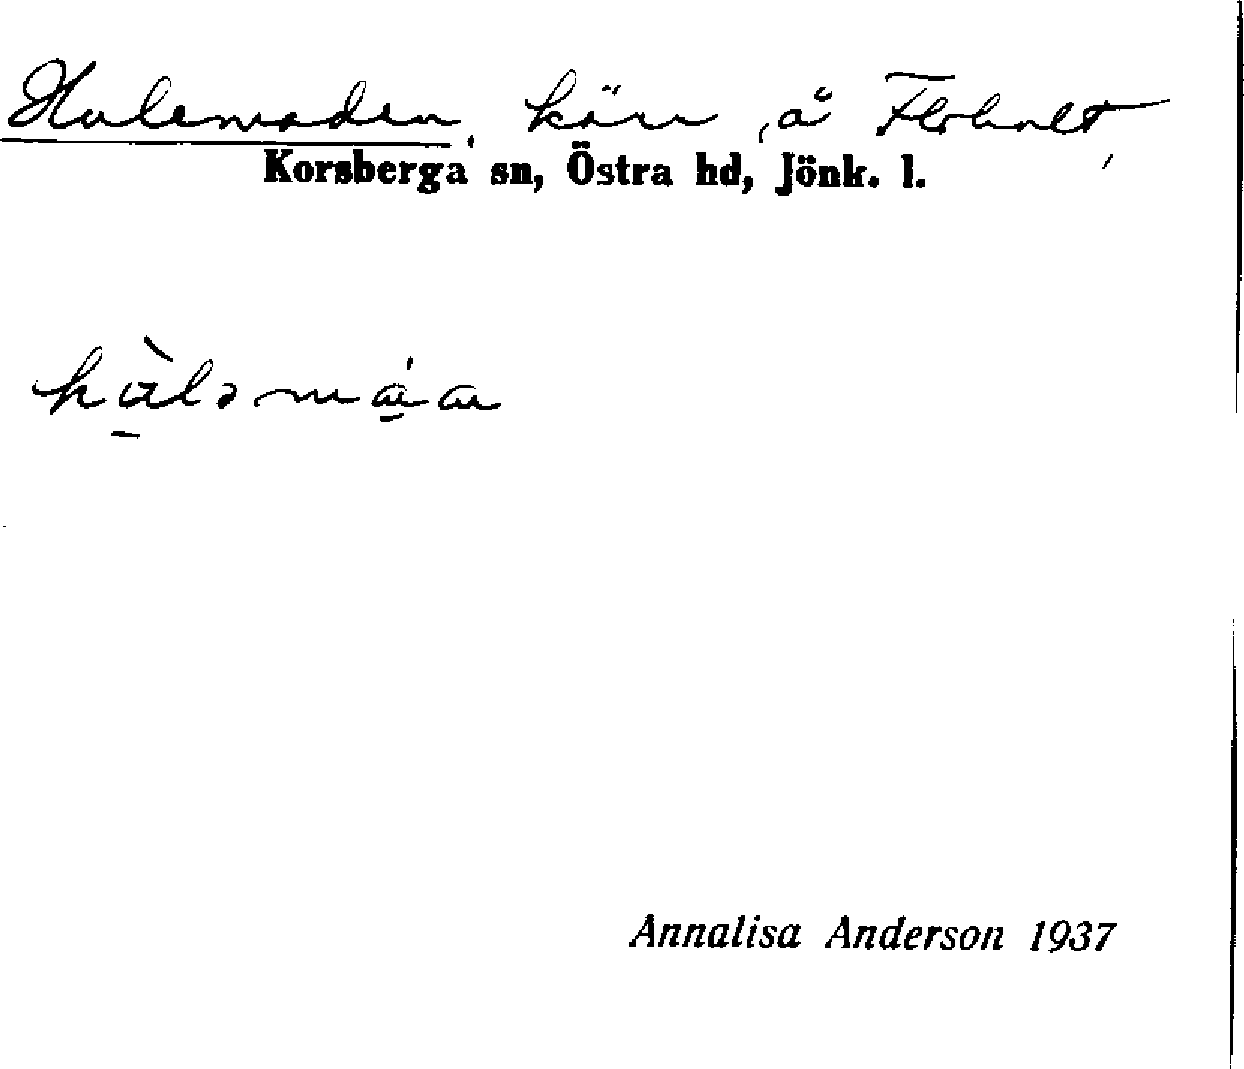 Hulemaden, kärr, å Floholt,
Korsberga sn, Östra hd, Jönk. l.
Annalisa Anderson 1937